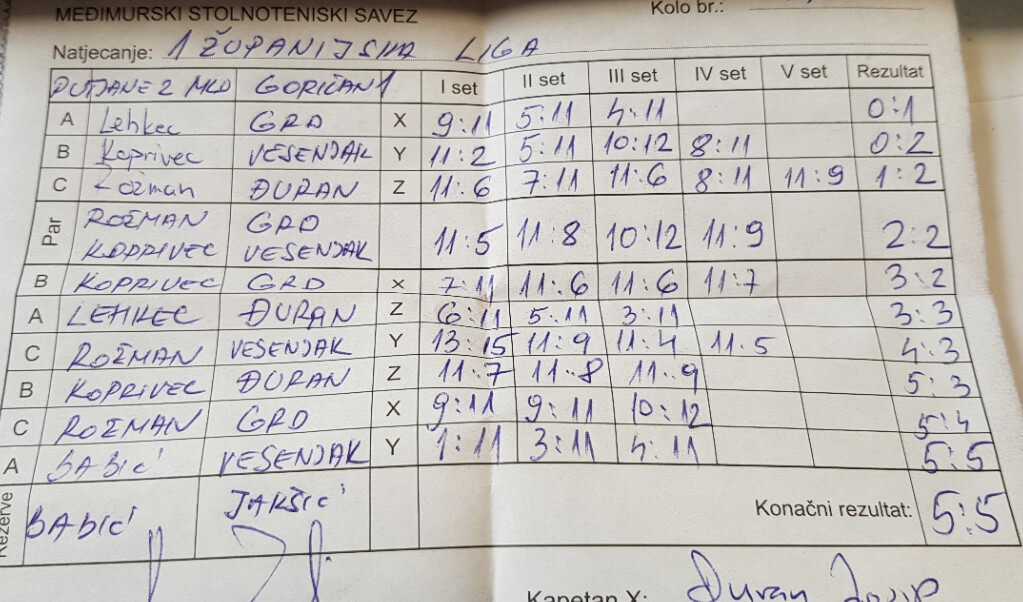 MEĐIMURSKI STOLNOTENISKI SAVEZ
Kolo br.:
Natjecanje: 1 ŽUPANIJSKA LIGA
PUŠĆANE 2 MLD GORIČAN 1 I set II set III set IV set V set Rezultat
A Lehkec GRD X 9:11 5:11 4:11 0:1
B Koprivec VESENJAK Y 11:2 5:11 10:12 8:11 0:2
C Rožman ĐURAN Z 11:6 7:11 11:6 8:11 11:9 1:2
Par ROŽMAN GRD
KOPRIVEC VESENJAK 11:5 11:8 10:12 11:9 2:2
B KOPRIVEC GRD X 7:11 11:6 11:6 11:7 3:2
A LEHKEC ĐURAN Z 6:11 5:11 3:11 3:3
C ROŽMAN VESENJAK Y 13:15 11:9 11:4 11:5 4:3
B KOPRIVEC ĐURAN Z 11:7 11:8 11:9 5:3
C ROŽMAN GRD X 9:11 9:11 10:12 5:4
A BABIĆ VESENJAK Y 1:11 3:11 4:11 5:5
Rezerve BABIĆ JAKŠIĆ Konačni rezultat: 5:5
Kapetan X: Đuran Josip